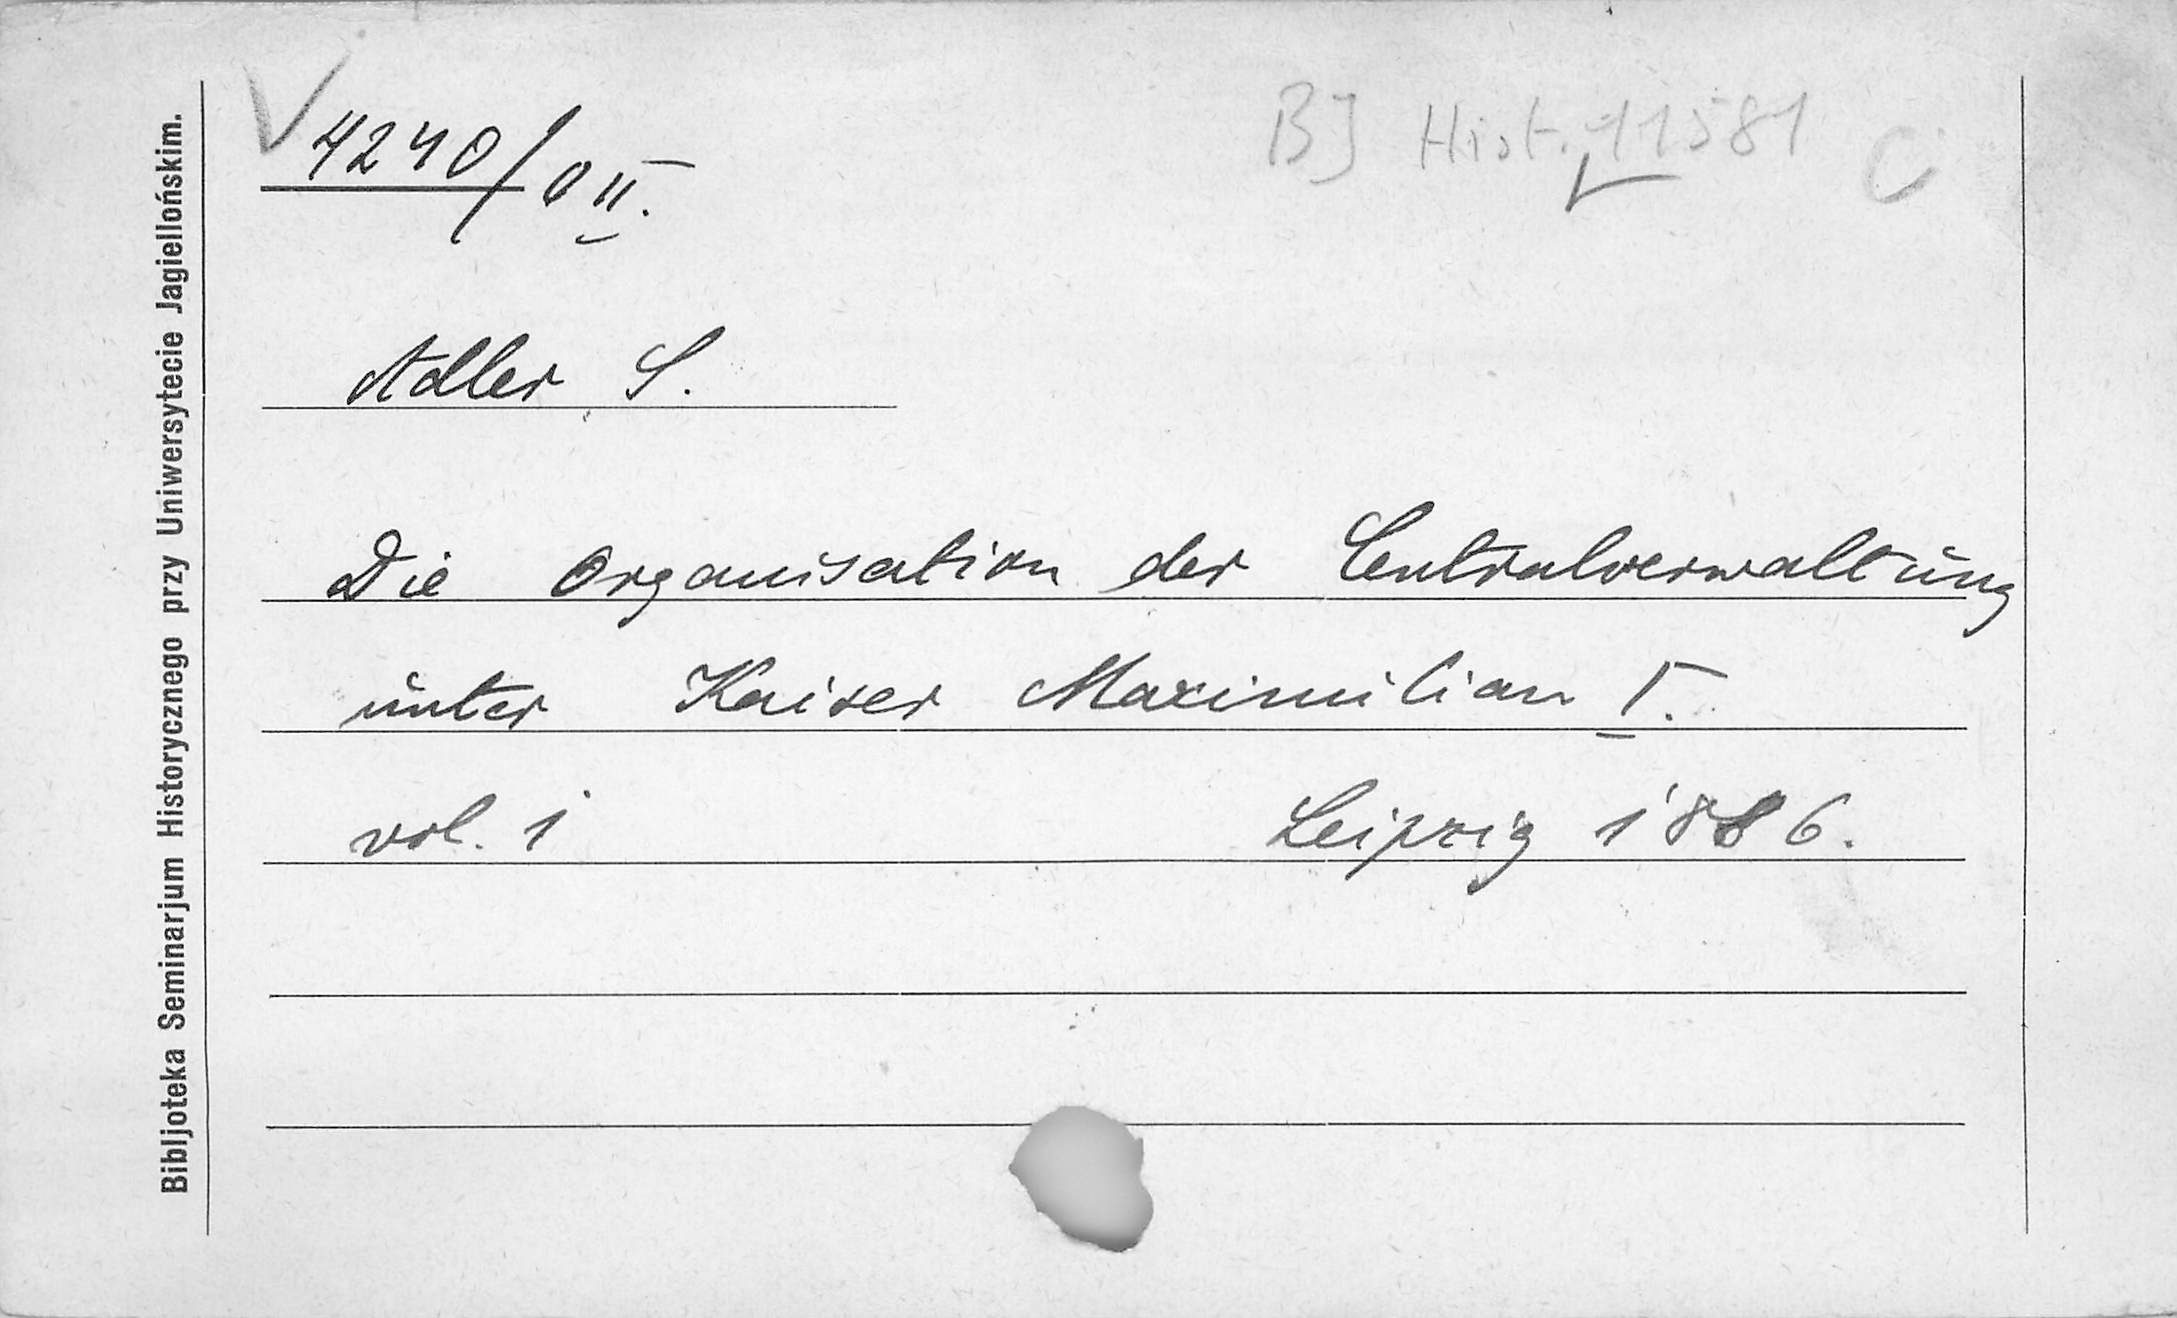 4240/0 II.
BJ Hist. 11581 C
Adler S.
Die Organisation der Centralverwaltung
unter Kaiser Maximilian I.
vol. 1 Leipzig 1886.
Bibljoteka Seminarjum Historycznego przy Uniwersytecie Jagiellońskim.